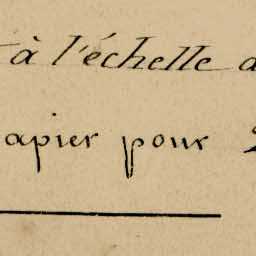 à l'échelle d
apier pour 2